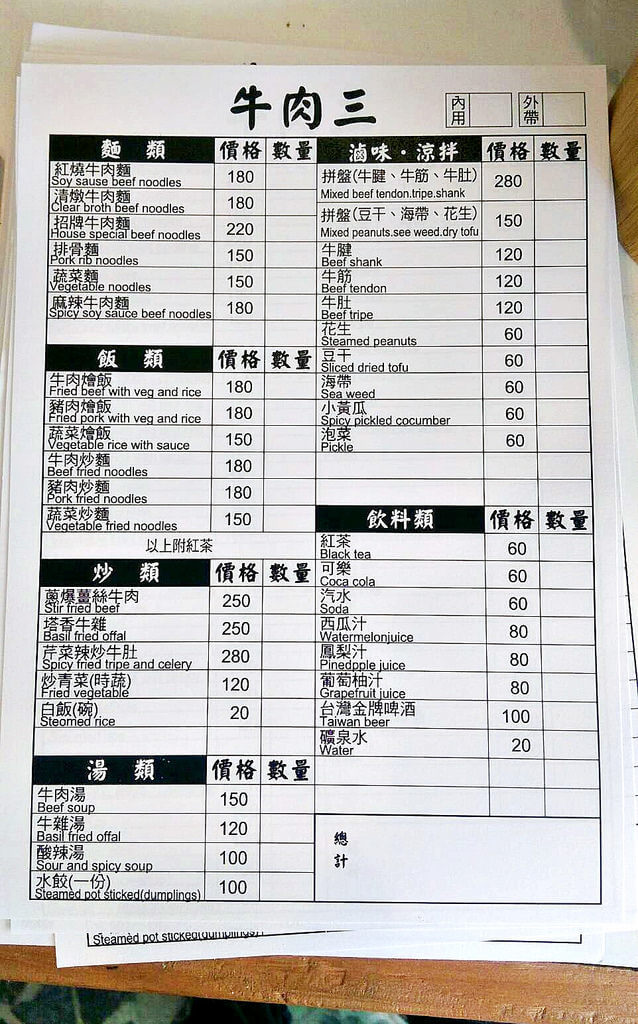 牛肉三
內用
外帶
麵類 價格 數量
紅燒牛肉麵
Soy sause beef noodles 180
清燉牛肉麵
Clear broth beef noodles 180
招牌牛肉麵
House special beef noodles 220
排骨麵
Pork rib noodles 150
蔬菜麵
Vegetable noodles 150
麻辣牛肉麵
Spicy soy sauce beef noodles 180
飯類 價格 數量
牛肉燴飯
Fried beef with veg and rice 180
豬肉燴飯
Fried pork with veg and rice 180
蔬菜燴飯
Vegetable rice with sauce 150
牛肉炒麵
Beef fried noodles 180
豬肉炒麵
Pork fried noodles 180
蔬菜炒麵
Vegetable fried noodles 150
以上附紅茶
炒類 價格 數量
蔥爆薑絲牛肉
Stir fried beef 250
塔香牛雜
Basil fried offal 250
芹菜辣炒牛肚
Spicy fried tripe and celery 280
炒青菜(時蔬)
Fried vegetable 120
白飯(碗)
Steomed rice 20
湯類 價格 數量
牛肉湯
Beef soup 150
牛雜湯
Basil fried offal 120
酸辣湯
Sour and spicy soup 100
水餃(一份)
Steamed pot sticked(dumplings) 100
滷味·涼拌 價格 數量
拼盤(牛腱、牛筋、牛肚)
Mixed beef tendon.tripe.shank 280
拼盤(豆干、海帶、花生)
Mixed peanuts.see weed.dry tofu 150
牛腱
Beef shank 120
牛筋
Beef tendon 120
牛肚
Beef tripe 120
花生
Steamed peanuts 60
豆干
Sliced dried tofu 60
海帶
Sea weed 60
小黃瓜
Spicy pickled cocumber 60
泡菜
Pickle 60
飲料類 價格 數量
紅茶
Black tea 60
可樂
Coca cola 60
汽水
Soda 60
西瓜汁
Watermelonjuice 80
鳳梨汁
Pinedpple juice 80
葡萄柚汁
Grapefruit juice 80
台灣金牌啤酒
Taiwan beer 100
礦泉水
Water 20
總計
Steamed pot sticked(dumplings)